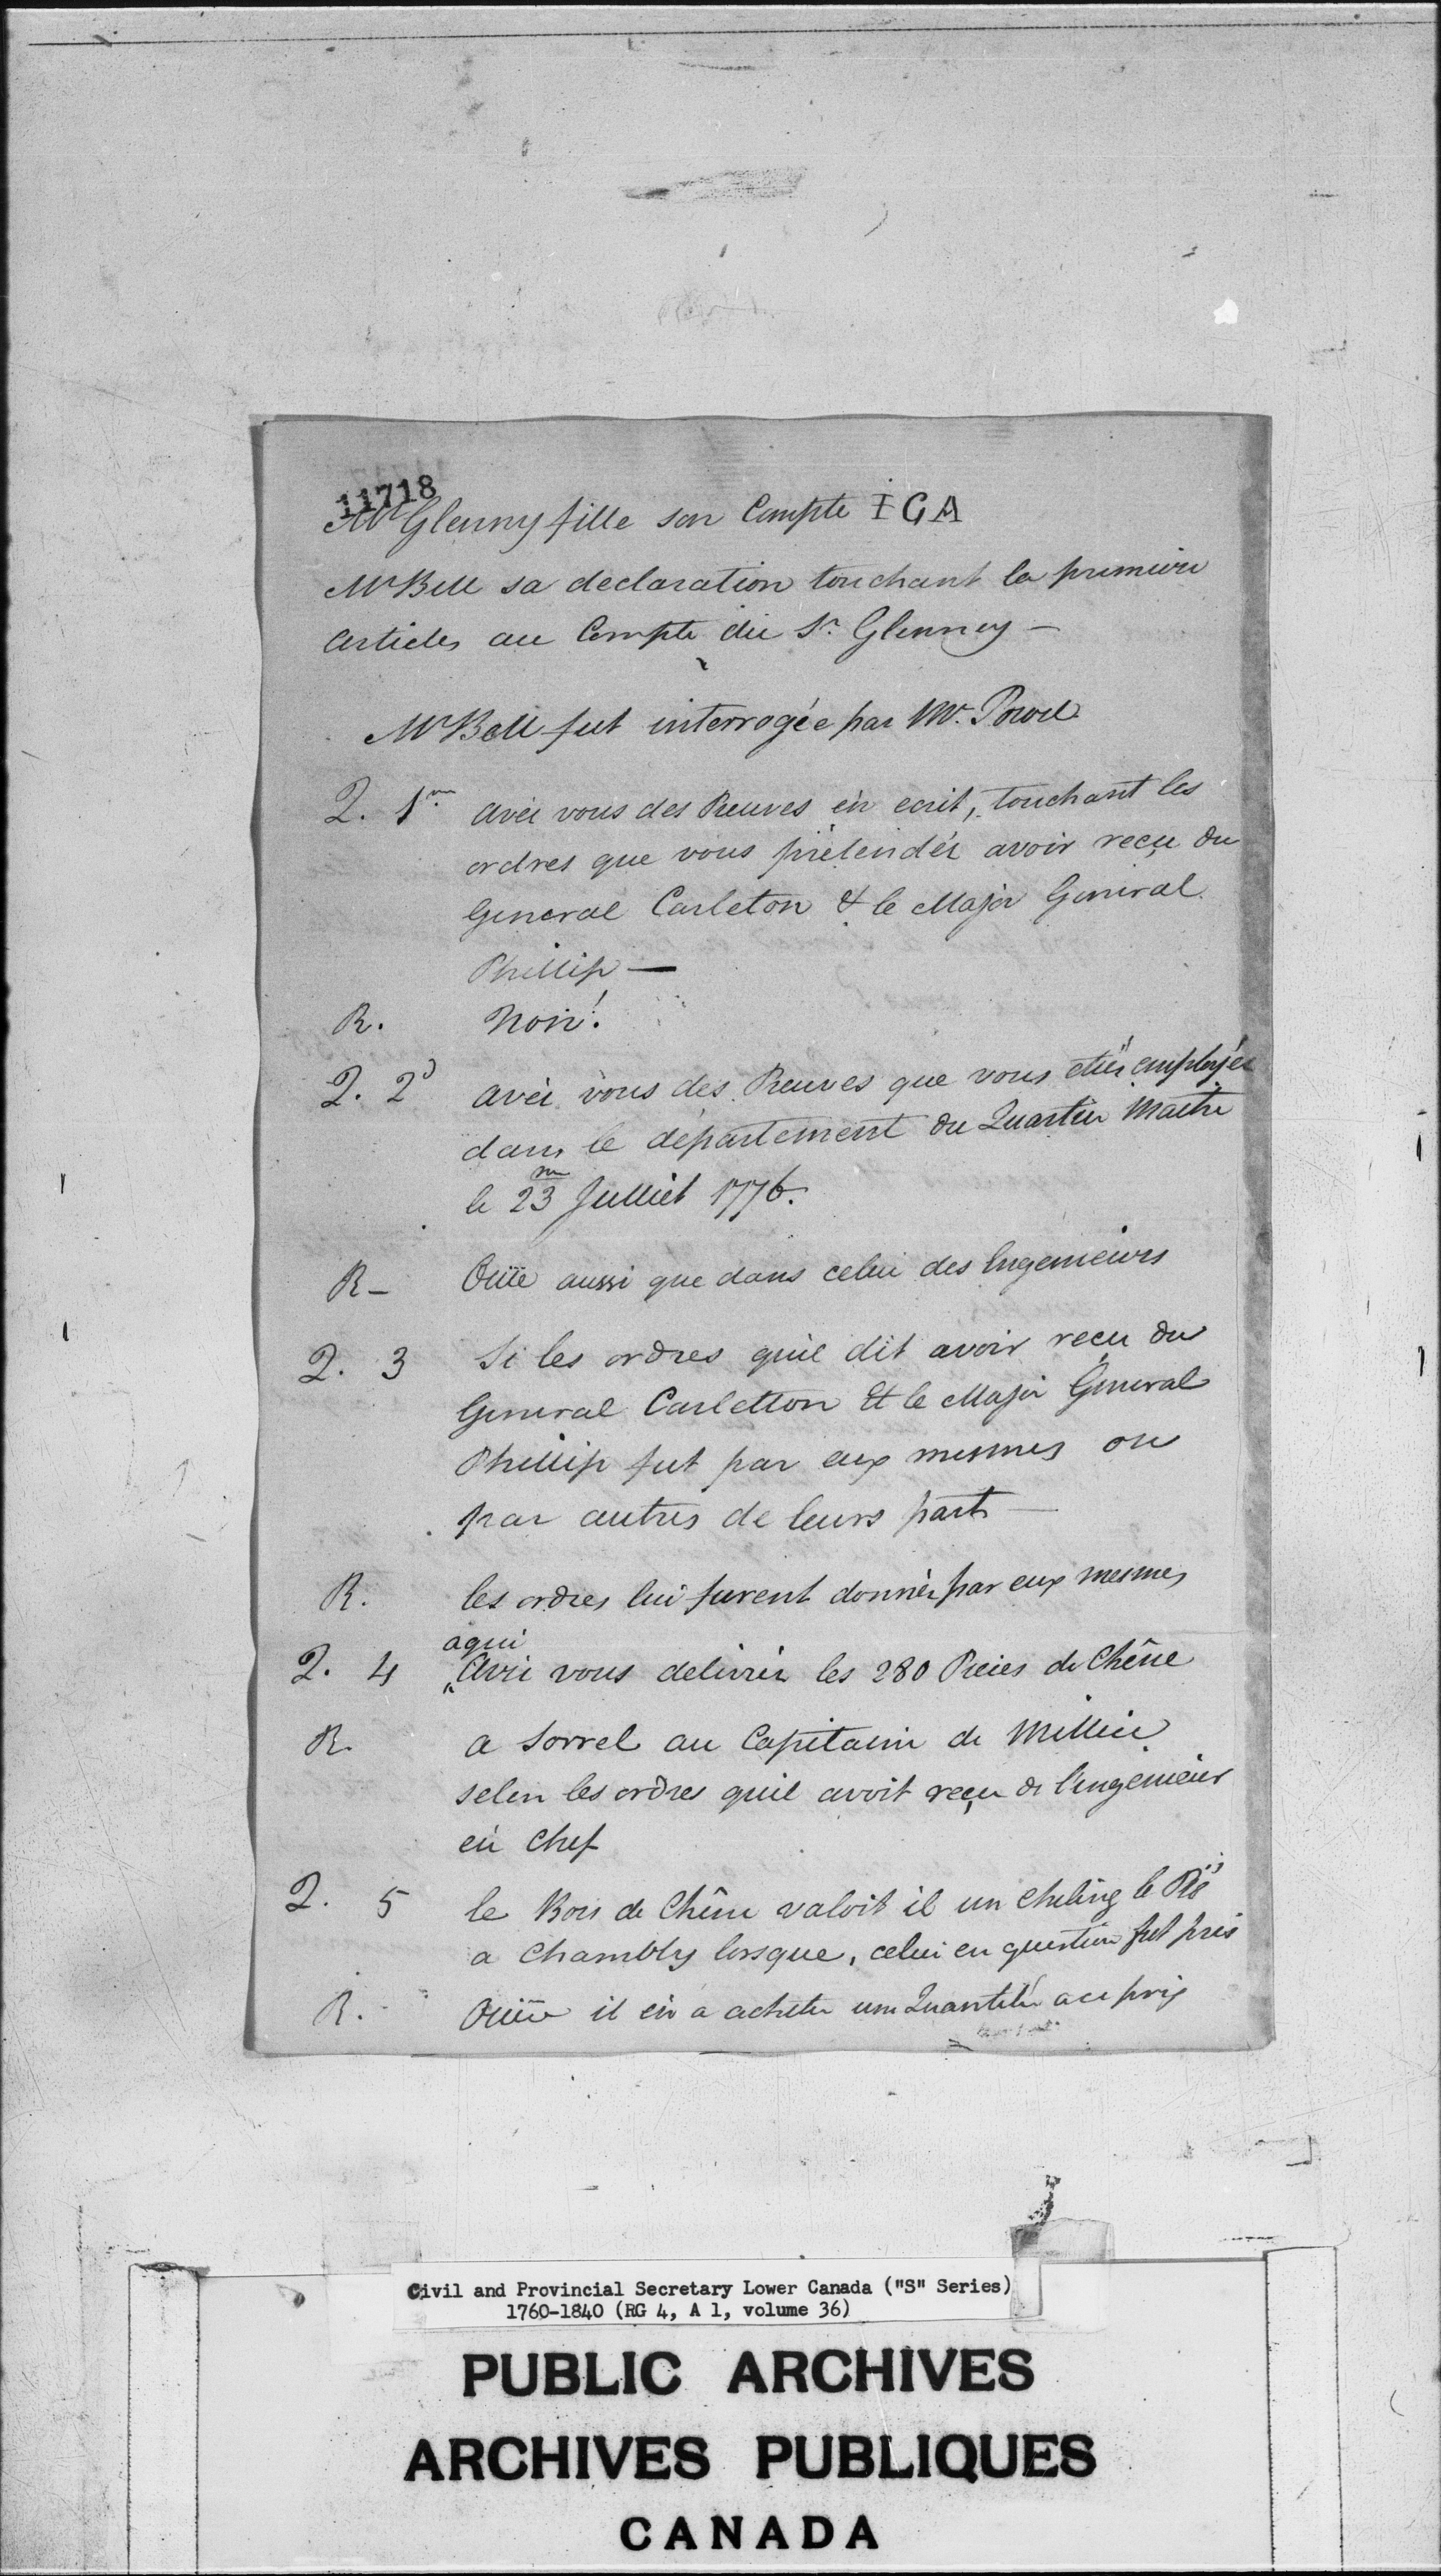 11718
Mr Glenny fille son Compte I G A
Mr Bell sa declaration touchant la premiere
articles au Compte du Sr. Glenney —
Mr Bell fut interrogée par Mr. Powel
Q. 1m avéz vous des Preuves en ecrit, touchant les
ordres que vous prétendéz avoir reçu du
General Carleton & le Major General
Phillip —
R. Non!
Q. 2d avéz vous des Preuves que vous etiéz employéz
dans le département du Quartier Maitre
le 23m Julliet 1776.
R — Oüïe aussi que dans celui des Ingenieurs
Q. 3 Si les ordres quil dit avoir recu du
General Carletton Et le Major General
Phillip fut par eux mesmes ou
par autres de leurs part —
R. les ordres lui furent donnéz par eux mesmes
aqui
Q. 4 Avéz vous delivréz les 280 Pieces de Chêne
R. a Sorrel au Capitaine de Millice
selon les ordres quil avoit reçu de l'ingenieur
en Chef
Q. 5 le Bois de Chêne valoit il un cheling le Pié
a Chambly lorsque, celui en question fut pris
R. Oüïe il en a acheter une Quantitéz a ce prix
Civil and Provincial Secretary Lower Canada ("S" Series)
1760-1840 (RG 4, A 1, volume 36)
PUBLIC ARCHIVES
ARCHIVES PUBLIQUES
CANADA